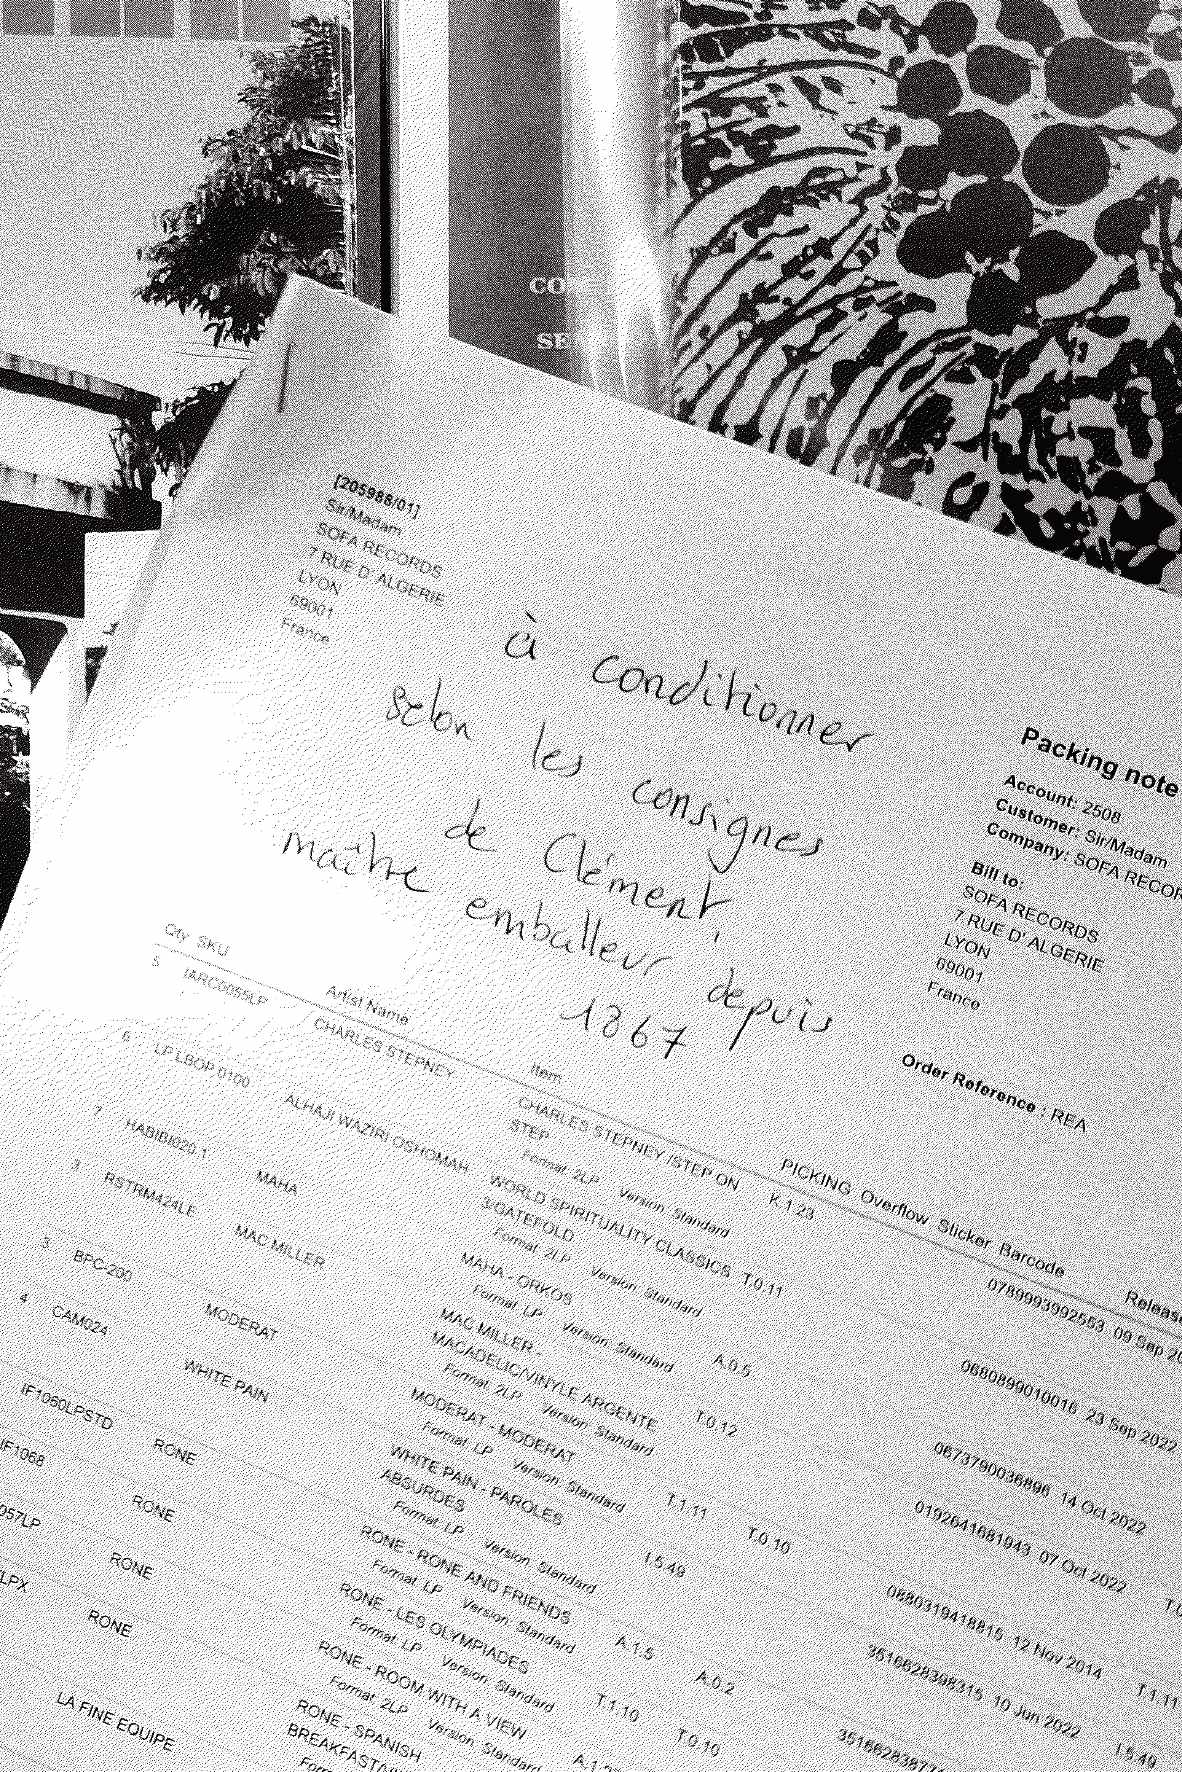 CO
SE
[205988/01]
Sir/Madam
SOFA RECORDS
7 RUE D' ALGERIE
LYON
69001
France
à conditionner
selon les consignes
de Clément,
maître emballeur depuis
1867
Packing note
Account: 2508
Customer: Sir/Madam
Company: SOFA RECOR
Bill to:
SOFA RECORDS
7 RUE D' ALGERIE
LYON
69001
France
Order Reference : REA
Qty SKU Artist Name Item PICKING Overflow Sticker Barcode Release
5 IARC0055LP CHARLES STEPNEY CHARLES STEPNEY /STEP ON K.1.23 0789993992553 09 Sep 20
STEP
Format 2LP Version Standard
6 LP LBOP 0100 ALHAJI WAZIRI OSHOMAH WORLD SPIRITUALITY CLASSICS T.0.11 0680899010016 23 Sep 2022
3/GATEFOLD
Format 2LP Version Standard
7 HABIBI020-1 MAHA MAHA - ORKOS A.0.5 0673790036896 14 Oct 2022
Format LP Version Standard
3 RSTRM424LE MAC MILLER MAC MILLER - T.0.12 0192641681943 07 Oct 2022
MACADELIC/VINYLE ARGENTE
Format 2LP Version Standard
3 BPC-200 MODERAT MODERAT - MODERAT T.1.11 T.0.10 0880319418815 12 Nov 2014 T.1.11
Format LP Version Standard
4 CAM024 WHITE PAIN WHITE PAIN - PAROLES I.5.49 3516628398315 10 Jun 2022 I.5.49
ABSURDES
Format LP Version Standard
IF1060LPSTD RONE RONE - RONE AND FRIENDS A.1.5 A.0.2
Format LP Version Standard
IF1068 RONE RONE - LES OLYMPIADES T.1.10 T.0.10
Format LP Version Standard
057LP RONE RONE - ROOM WITH A VIEW
Format 2LP Version Standard
LPX RONE RONE - SPANISH
BREAKFAST
LA FINE EQUIPE